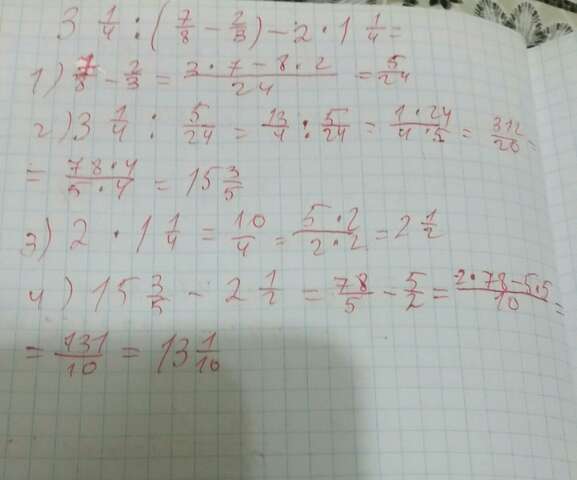 3 1/4 : ( 7/8 - 2/3 ) - 2 · 1 1/4 =
1) 7/8 - 2/3 = (3 · 7 - 8 · 2)/24 = 5/24
2) 3 1/4 : 5/24 = 13/4 : 5/24 = (1 · 24)/(4 · 5) = 312/20 =
= (78 · 4)/(5 · 4) = 15 3/5
3) 2 · 1 1/4 = 10/4 = (5 · 2)/(2 · 2) = 2 1/2
4) 15 3/5 - 2 1/2 = 78/5 - 5/2 = (2 · 78 - 5 · 5)/10 =
= 131/10 = 13 1/10